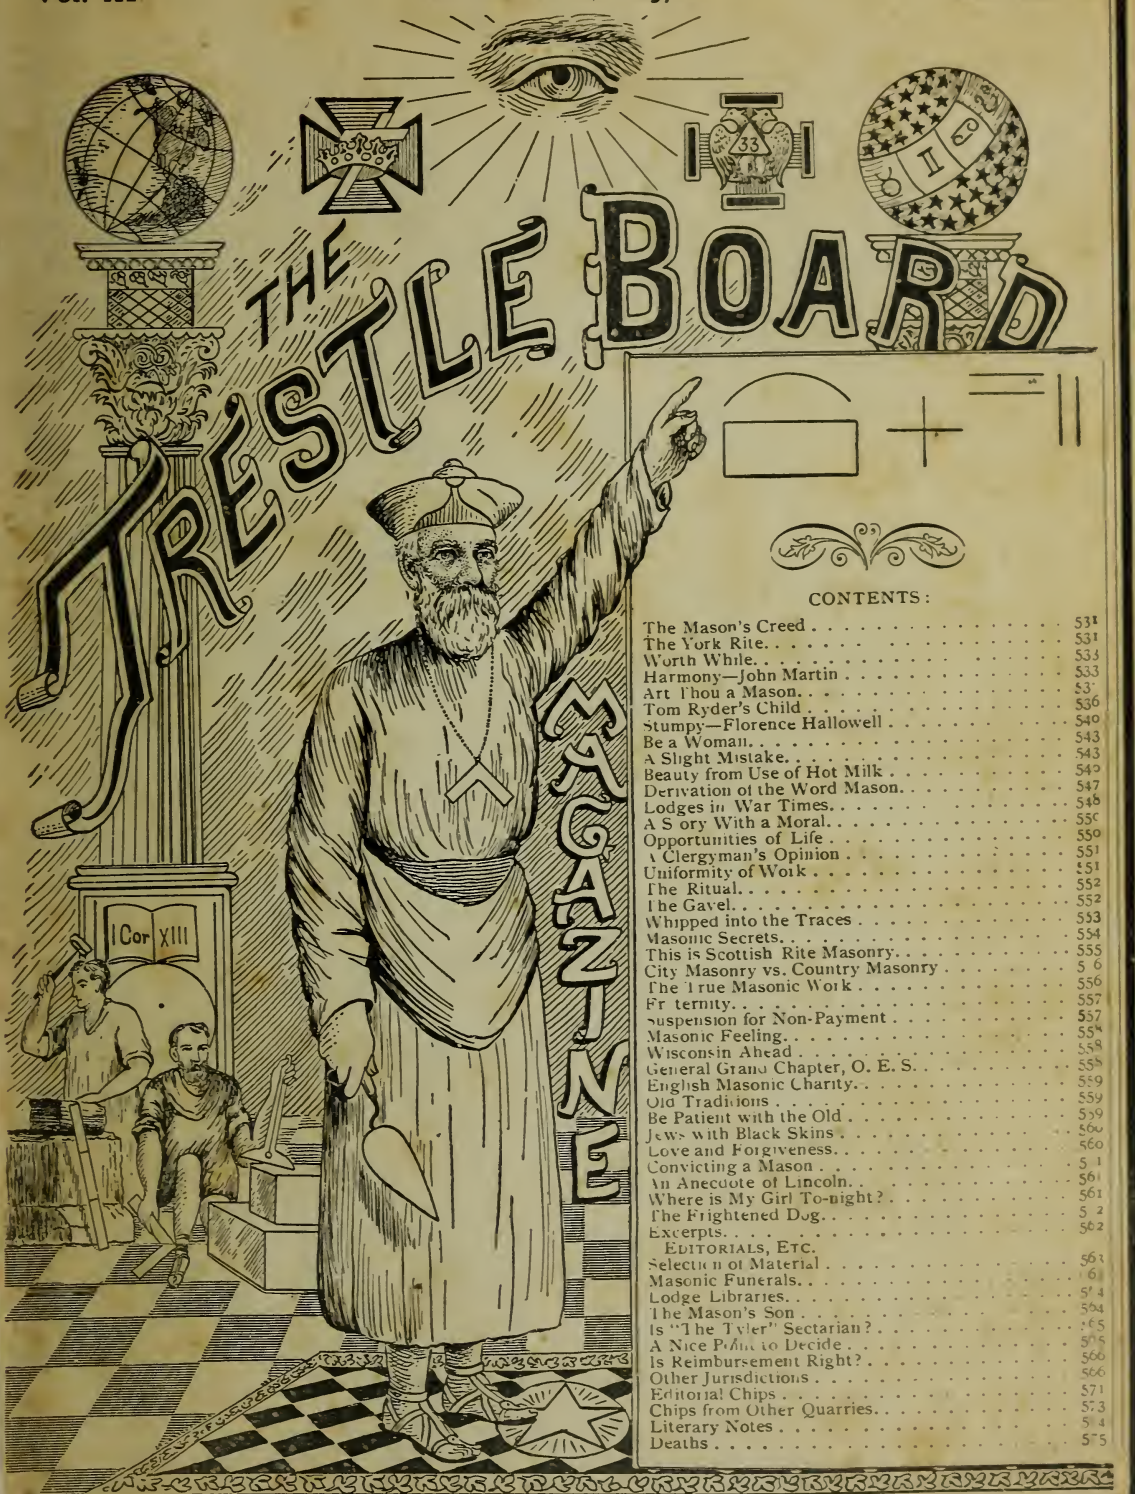 33
THE
TRESTLE BOARD
MAGAZINE
I Cor XIII
CONTENTS:
The Mason's Creed . . . . . . . . 531
The York Rite. . . . . . . . 531
Worth While. . . . . . . . 533
Harmony—John Martin . . . . . . . . 533
Art Thou a Mason. . . . . . . .
Tom Ryder's Child . . . . . . . . 536
Stumpy—Florence Hallowell . . . . . . . . 540
Be a Woman. . . . . . . . 543
A Slight Mistake. . . . . . . . 543
Beauty from Use of Hot Milk . . . . . . . .
Derivation of the Word Mason. . . . . . . . 547
Lodges in War Times. . . . . . . . 548
A S ory With a Moral. . . . . . . .
Opportunities of Life . . . . . . . . 550
A Clergyman's Opinion . . . . . . . . 551
Uniformity of Work . . . . . . . . 551
The Ritual. . . . . . . . 552
The Gavel. . . . . . . . 552
Whipped into the Traces . . . . . . . . 553
Masonic Secrets. . . . . . . . 554
This is Scottish Rite Masonry. . . . . . . . 555
City Masonry vs. Country Masonry . . . . . . . . 5 6
The True Masonic Work . . . . . . . . 556
Fr ternity. . . . . . . . 557
Suspension for Non-Payment . . . . . . . . 557
Masonic Feeling. . . . . . . . 558
Wisconsin Ahead . . . . . . . . 558
General Grand Chapter, O. E. S. . . . . . . . 558
English Masonic Charity. . . . . . . . 559
Old Traditions . . . . . . . . 559
Be Patient with the Old . . . . . . . . 559
Jews with Black Skins . . . . . . . . 560
Love and Forgiveness. . . . . . . . 560
Convicting a Mason . . . . . . . . 5 1
An Anecdote of Lincoln. . . . . . . . 561
Where is My Girl To-night? . . . . . . . . 561
The Frightened Dog. . . . . . . . 5 2
Excerpts. . . . . . . . 562
EDITORIALS, ETC.
Selection of Material . . . . . . . . 563
Masonic Funerals. . . . . . . .
Lodge Libraries. . . . . . . .
The Mason's Son . . . . . . . . 564
Is "The Tyler" Sectarian? . . . . . . . .
A Nice Point to Decide . . . . . . . . 565
Is Reimbursement Right? . . . . . . . . 566
Other Jurisdictions . . . . . . . . 566
Editorial Chips . . . . . . . . 571
Chips from Other Quarries. . . . . . . . 573
Literary Notes . . . . . . . .
Deaths . . . . . . . . 575